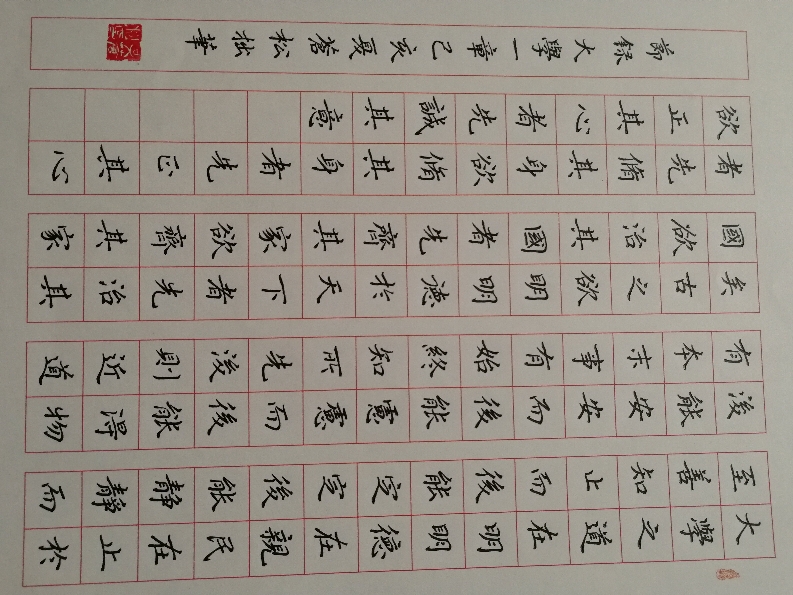 大學之道在明明德在親民在止於
至善知止而後能定定後能靜靜而
後能安安而後能慮慮而後能得物
有本末事有始終知所先後則近道
矣古之欲明明德於天下者先治其
國欲治其國者先齊其家欲齊其家
者先脩其身欲脩其身者先正其心
欲正其心者先誠其意
節録大學一章己亥夏蒼松拙筆